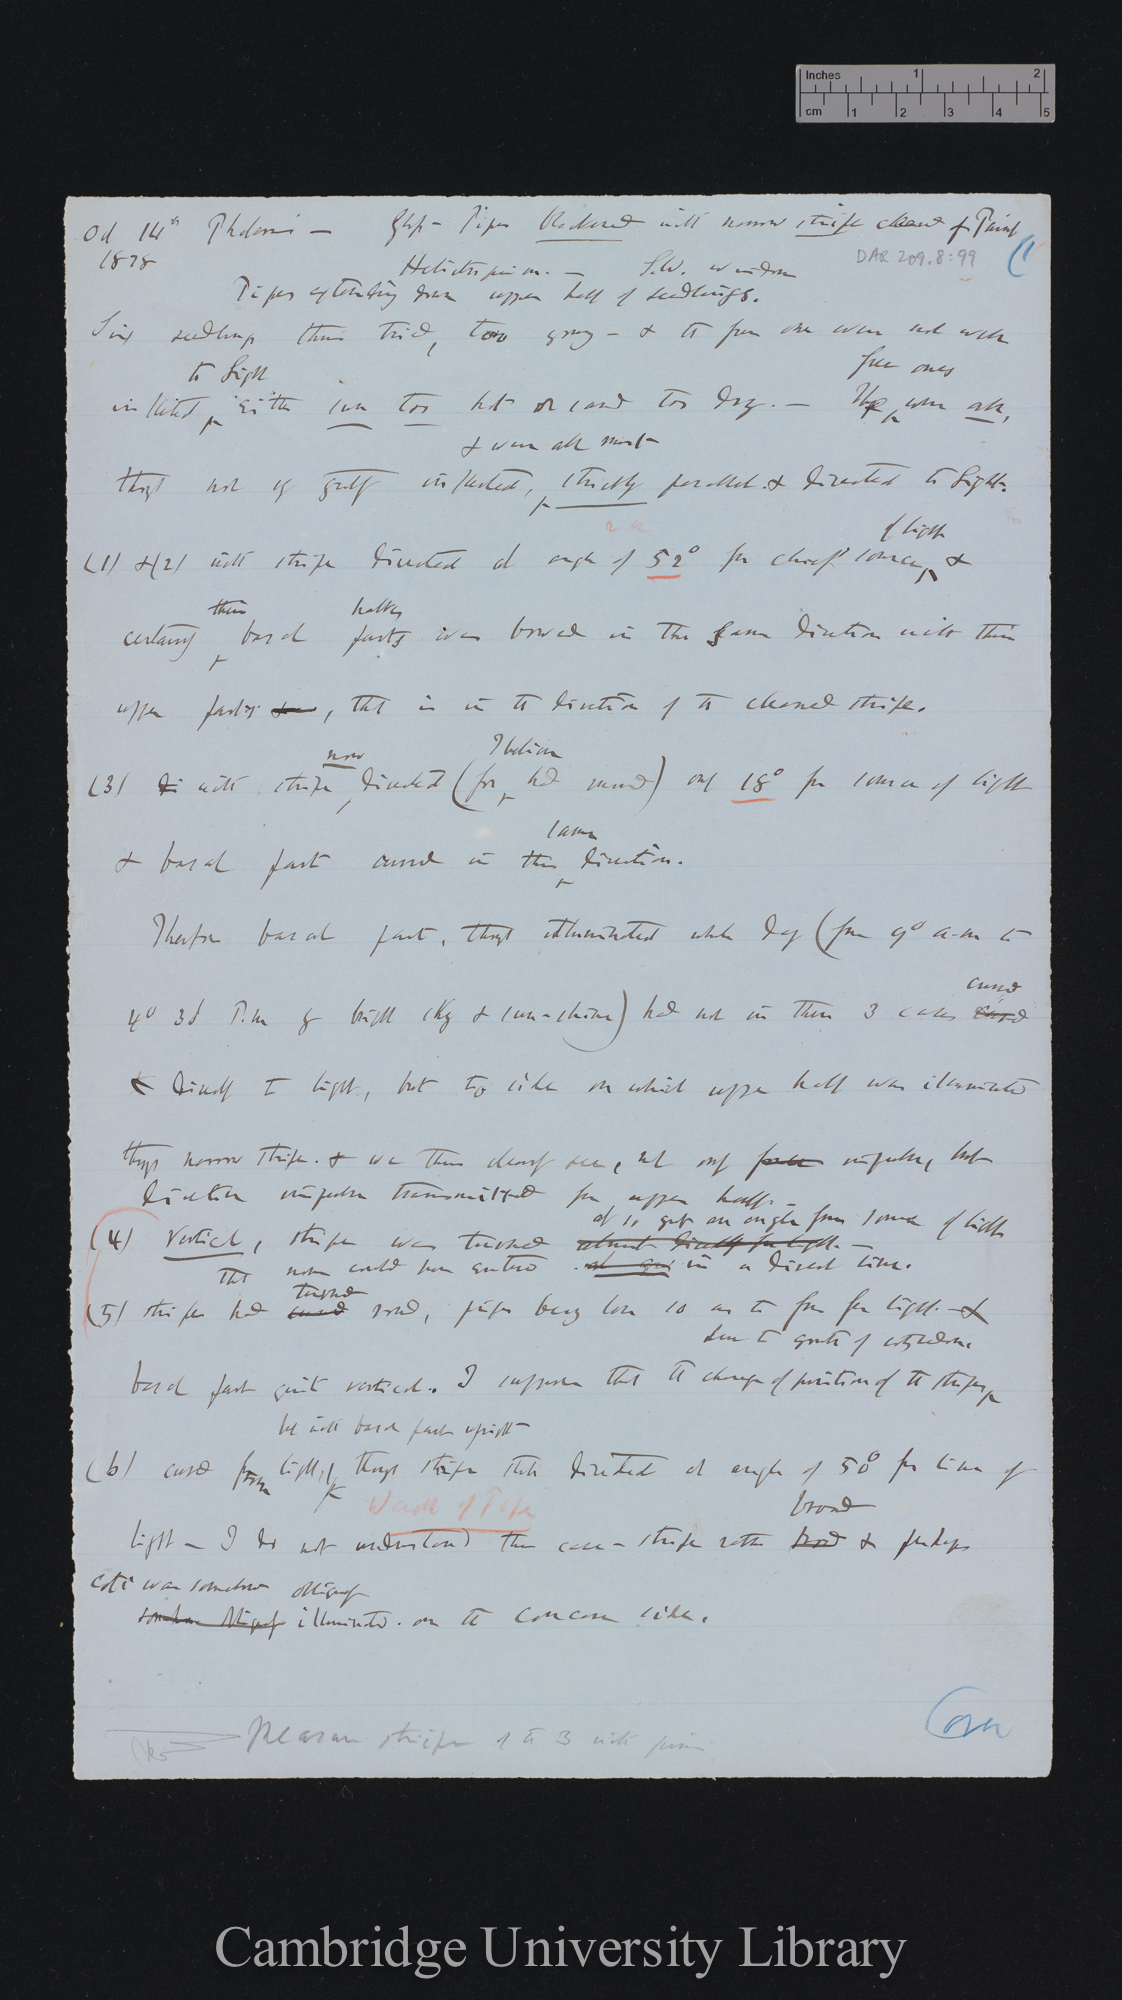 Inches 1 2
cm 1 2 3 4 5
Oct 14th Phalaris — Glass- Pipes blackened with narrow stripe cleaned of Paint (1
1878 DAR 209.8:99
Heliotropism. — S.W. window
Pipes extending down upper half of seedlings.
Six seedlings thus tried, too young — & the free one were not well
to light free ones
inflected, either sun too hot or sand too dry. — The were all,
& were all most
though not of greatly inflected, strictly parallel & directed to light.
of light
(1) & (2) with stripe directed at angle of 52° from chief source, &
their halves
certainly basal parts was bowed in the same direction with their
upper parts, that is in the direction of the cleaned stripe.
now I believe
(3) with stripe directed (for had moved) only 18° from source of light
same
& basal part curved in this direction.
Therefore basal part, though illuminated whole day (from 9° a.m to
curved
4° 30 P.m by bright sky & sun-shine) had not in these 3 cases
directly to light, but to side on which upper half was illuminated
through narrow stripe. & we thus clearly see, not only impulse, but
direction impulse transmitted from upper half. —
at so great an angle from source of light
(4) Vertical, stripe was turned almost directly from light. —
that none could have entered in a direct line.
turned
(5) stripe had round, pipe being loose so as to from light. — &
due to growth of cotyledon.
basal part quite vertical. I suppose that the change of position of the stripe,
but with basal part upright
(6) curved from light, though stripe stood directed at angle of 50° from line of
Width of Pipe
broad
light — I do not understand this case — stripe rather & perhaps
cot: was somehow obliquely
somehow obliquely illuminated. on the concave side.
Over
Measure stripe of the 3 with
Cambridge University Library